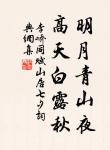 明月青山夜
高天白露秋
李嶠同賦山居七夕詞
典網集